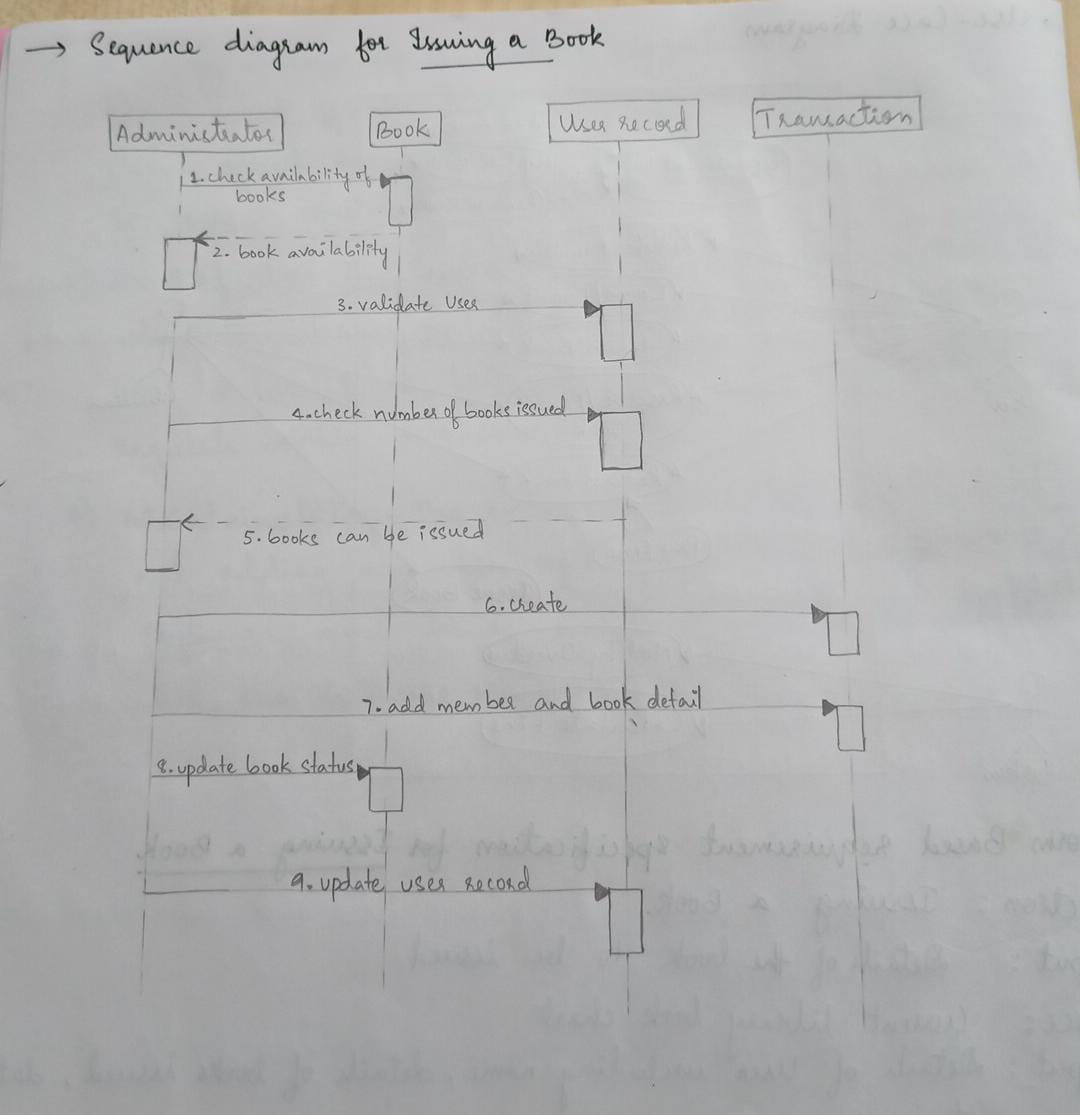 → Sequence diagram for Issuing a Book
Administrator
Book
User record
Transaction
1. check availability of
books
2. book availability
3. validate User
4. check number of books issued
5. books can be issued
6. create
7. add member and book detail
8. update book status
9. update user record